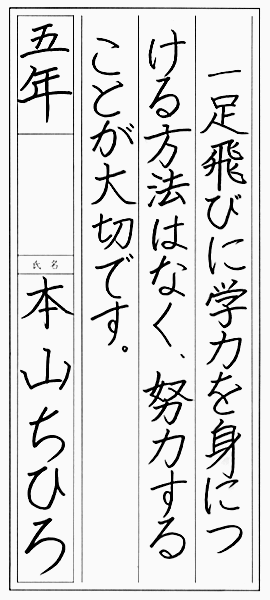 一足飛びに学力を身につ
ける方法はなく、努力する
ことが大切です。
五年
氏名
本山ちひろ